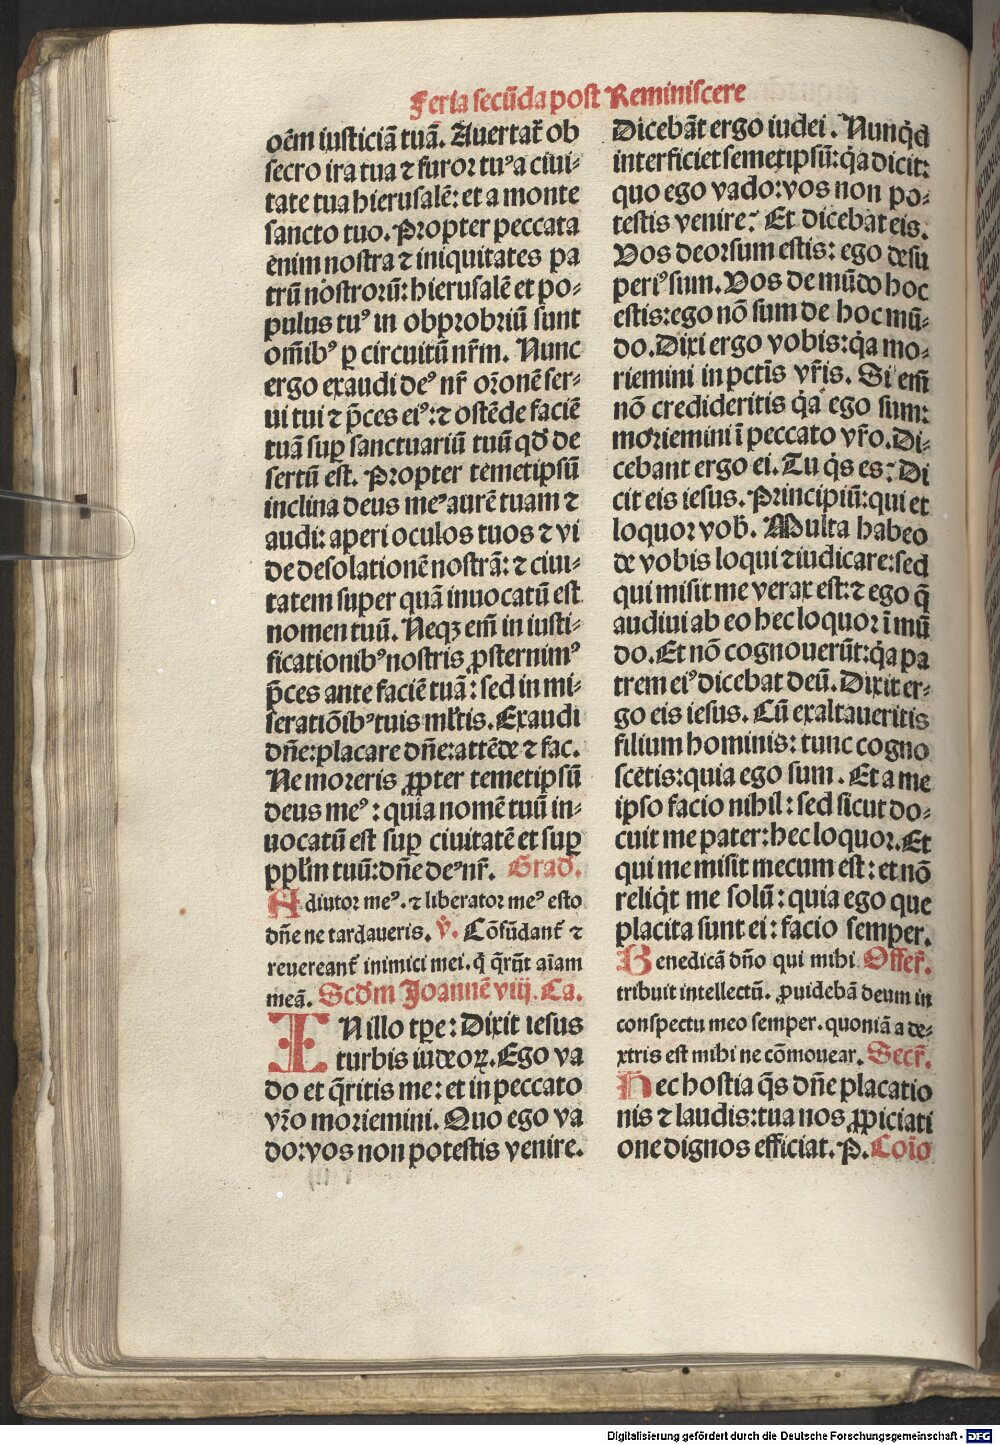 Feria secūda post Reminiscere
oēm iusticiā tuā. Auertat᷑ ob
secro ira tua ⁊ furor tuꝰ a ciui⸗
tate tua hierusalē: et a monte
sancto tuo. Propter peccata
enim nostra ⁊ iniquitates pa
trū nostrorū: hierusalē et po⸗
pulus tuꝰ in obprobriū sunt
om̄ibꝰ ꝑ circuitū nr̄m. Nunc
ergo exaudi deꝰ nr̄ or̄onē ser⸗
ui tui ⁊ p̄ces eiꝰ: ⁊ ostēde faciē
tuā suꝑ sanctuariū tuū qd̄ de
sertū est. Propter temetipsū
inclina deus meꝰ aurē tuam ⁊
audi: aperi oculos tuos ⁊ vi
de desolationē nostrā: ⁊ ciui⸗
tatem super quā inuocatū est
nomen tuū. Neqꝫ em̄ in iusti⸗
ficationibꝰ nostris ꝓsternimꝰ
p̄ces ante faciē tuā: sed in mi⸗
seratiōibꝰ tuis ml̄tis. Exaudi
dn̄e: placare dn̄e: attēde ⁊ fac.
Ne moreris ꝓpter temetipsū
deus meꝰ: quia nomē tuū in⸗
uocatū est suꝑ ciuitatē et suꝑ
ppl̄m tuū: dn̄e deꝰ nr̄. Grad̄.
Adiutor meꝰ. ⁊ liberator meꝰ esto
dn̄e ne tardaueris. V̄. Cōfūdant᷑ ⁊
reuereant᷑ inimici mei. q̇ q̄rūt aīam
meā. Scd̄m Joannē viij. Ca.
IN illo tp̄e: Dixit iesus
turbis iudeoꝝ. Ego va
do et q̄ritis me: et in peccato
vr̄o moriemini. Quo ego va
do: vos non potestis venire.
Dicebāt ergo iudei. Nunq̇d
interficiet semetipsū: q̇a dicit:
quo ego vado: vos non po⸗
testis venire: Et dicebat eis.
Vos deorsum estis: ego desu
periꝰ sum. Vos de mūdo hoc
estis: ego nō sum de hoc mū⸗
do. Dixi ergo vobis: q̇a mo⸗
riemini in pct̄is vr̄is. Si em̄
nō credideritis q̇a ego sum:
moriemini ī peccato vr̄o. Di⸗
cebant ergo ei. Tu q̇s es: Di
cit eis iesus. Principiū: qui et
loquor vob̄. Multa habeo
de vobis loqui ⁊ iudicare: sed
qui misit me verax est: ⁊ ego q̄
audiui ab eo hec loquor ī mū
do. Et nō cognouerūt: q̇a pa
trem eiꝰ dicebat deū. Dixit er⸗
go eis iesus. Cū exaltaueritis
filium hominis: tunc cogno
scetis: quia ego sum. Et a me
ipso facio nihil: sed sicut do⸗
cuit me pater: hec loquor. Et
qui me misit mecum est: et nō
reliq̇t me solū: quia ego que
placita sunt ei: facio semper.
Benedicā dn̄o qui mihi Offer̄.
tribuit intellectū. ꝓuidebā deum in
conspectu meo semper. quoniā a de⸗
xtris est mihi ne cōmouear. Secr̄.
Hec hostia q̄s dn̄e placatio
nis ⁊ laudis: tua nos ꝓpiciati
one dignos efficiat. P. Coīo
Digitalisierung gefördert durch die Deutsche Forschungsgemeinschaft - DFG